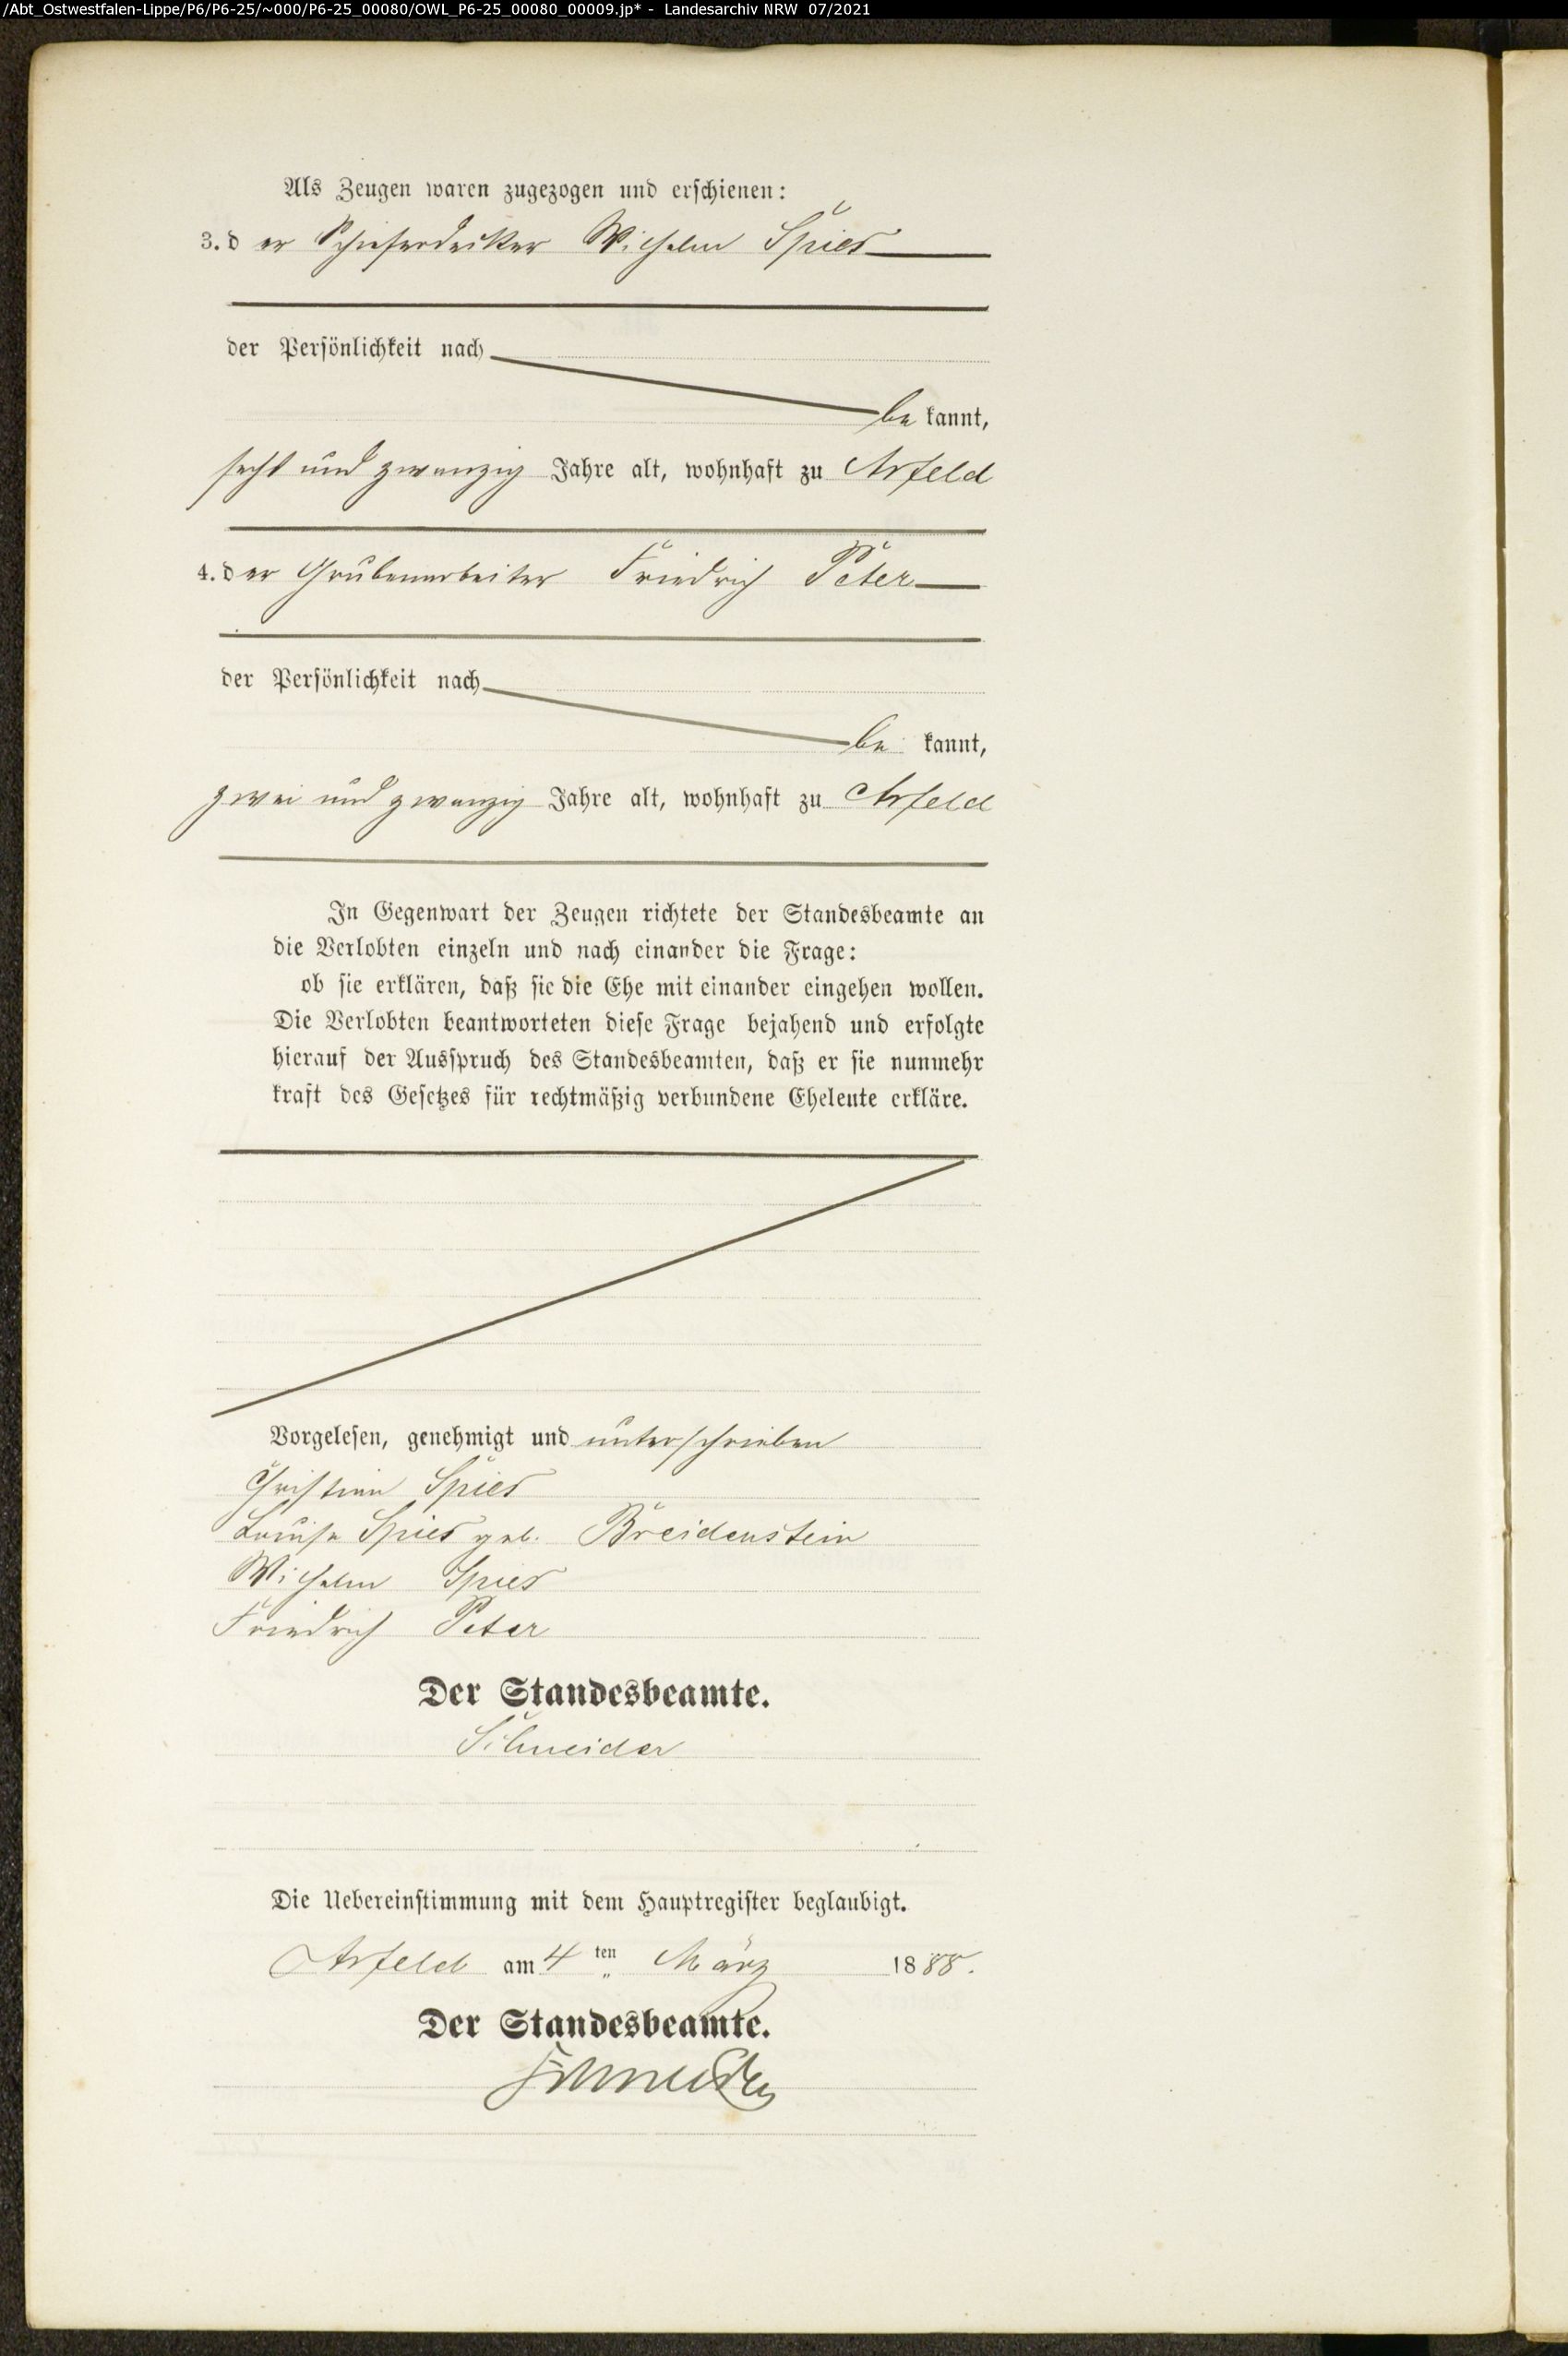 /Abt_Ostwestfalen-Lippe/P6/P6-25/~000/P6-25_00080/OWL_P6-25_00080_00009.jp* - Landesarchiv NRW 07/2021
Als Zeugen waren zugezogen und erschienen:
3. der Schieferdecker Wilhelm Spies
der Persönlichkeit nach
be kannt,
sechs und zwanzig Jahre alt, wohnhaft zu Arfeld
4. der Grubenarbeiter Friedrich Peter
der Persönlichkeit nach
be kannt,
zwei und zwanzig Jahre alt, wohnhaft zu Arfeld
In Gegenwart der Zeugen richtete der Standesbeamte an
die Verlobten einzeln und nach einander die Frage:
ob sie erklären, daß sie die Ehe mit einander eingehen wollen.
Die Verlobten beantworteten diese Frage bejahend und erfolgte
hierauf der Ausspruch des Standesbeamten, daß er sie nunmehr
kraft des Gesetzes für rechtmäßig verbundene Eheleute erkläre.
Vorgelesen, genehmigt und unterschrieben
Christian Spies
Louise Spies geb. Breidenstein
Wilhelm Spies
Friedrich Peter
Der Standesbeamte.
Schneider
Die Uebereinstimmung mit dem Hauptregister beglaubigt.
Arfeld am 4 ten März 1888.
Der Standesbeamte.
Schneider